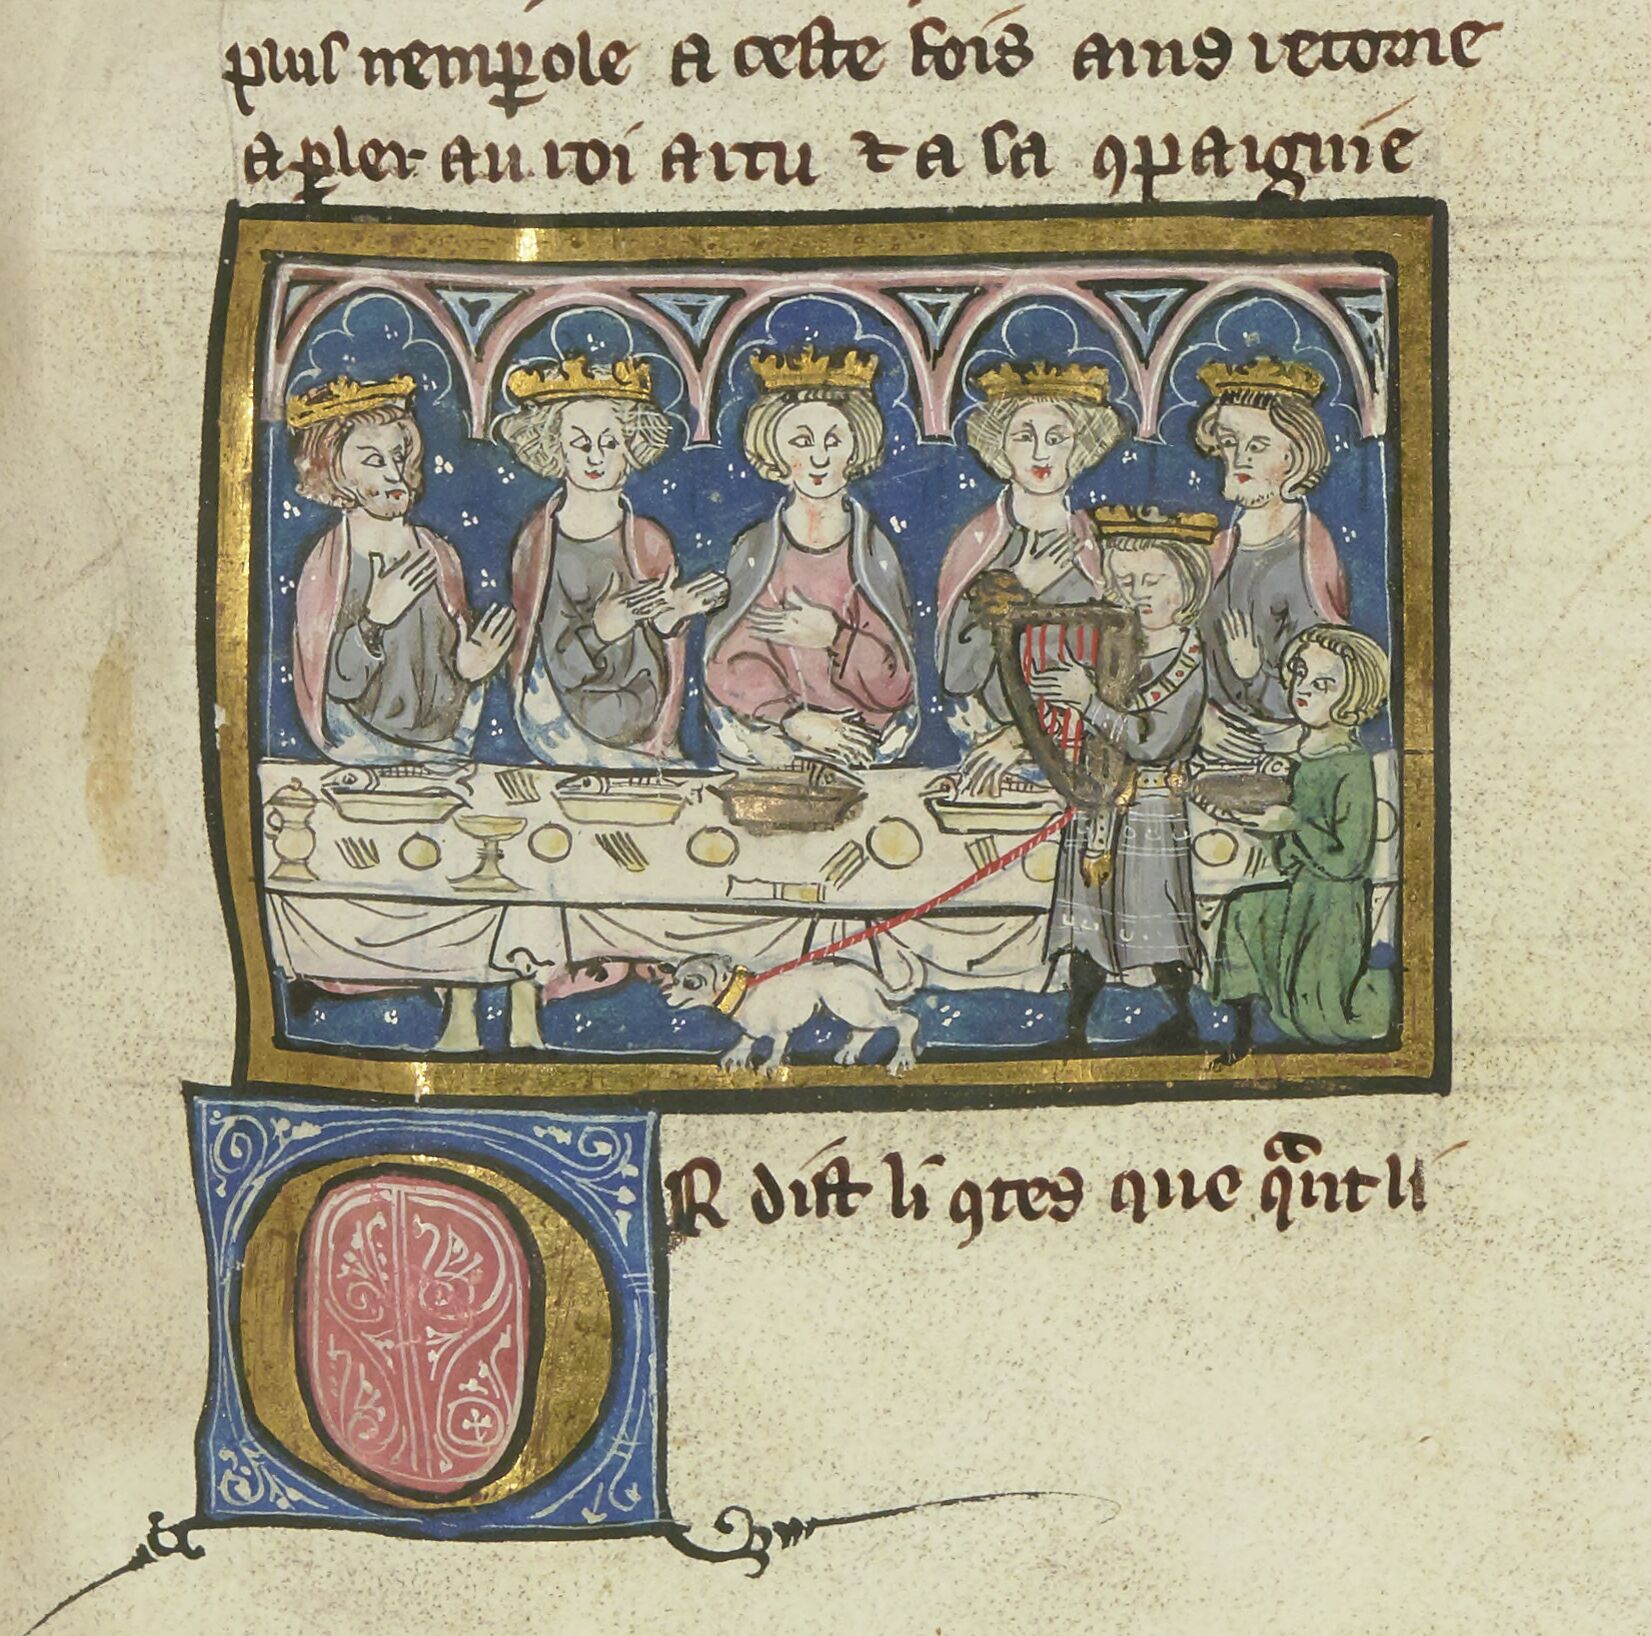 plus nemꝑole a ceste fois ains retorne
a ꝑler au roi artu ⁊ a sa ꝯpaignie
OR dist li ꝯtes que qͣnt li